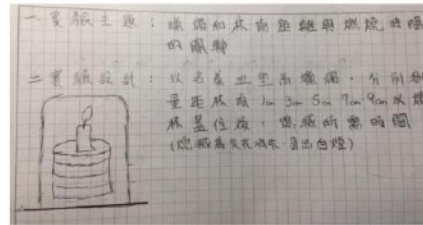 一 實驗主題：蠟燭和杯底距離與燃燒時間
的關聯
二 實驗設計：以名義工型為蠟燭，分別測
量距杯底 1cm 3cm 5cm 7cm 9cm 以燒
杯蓋住後，熄滅所需時間
(熄滅為火花消失 冒出白煙)